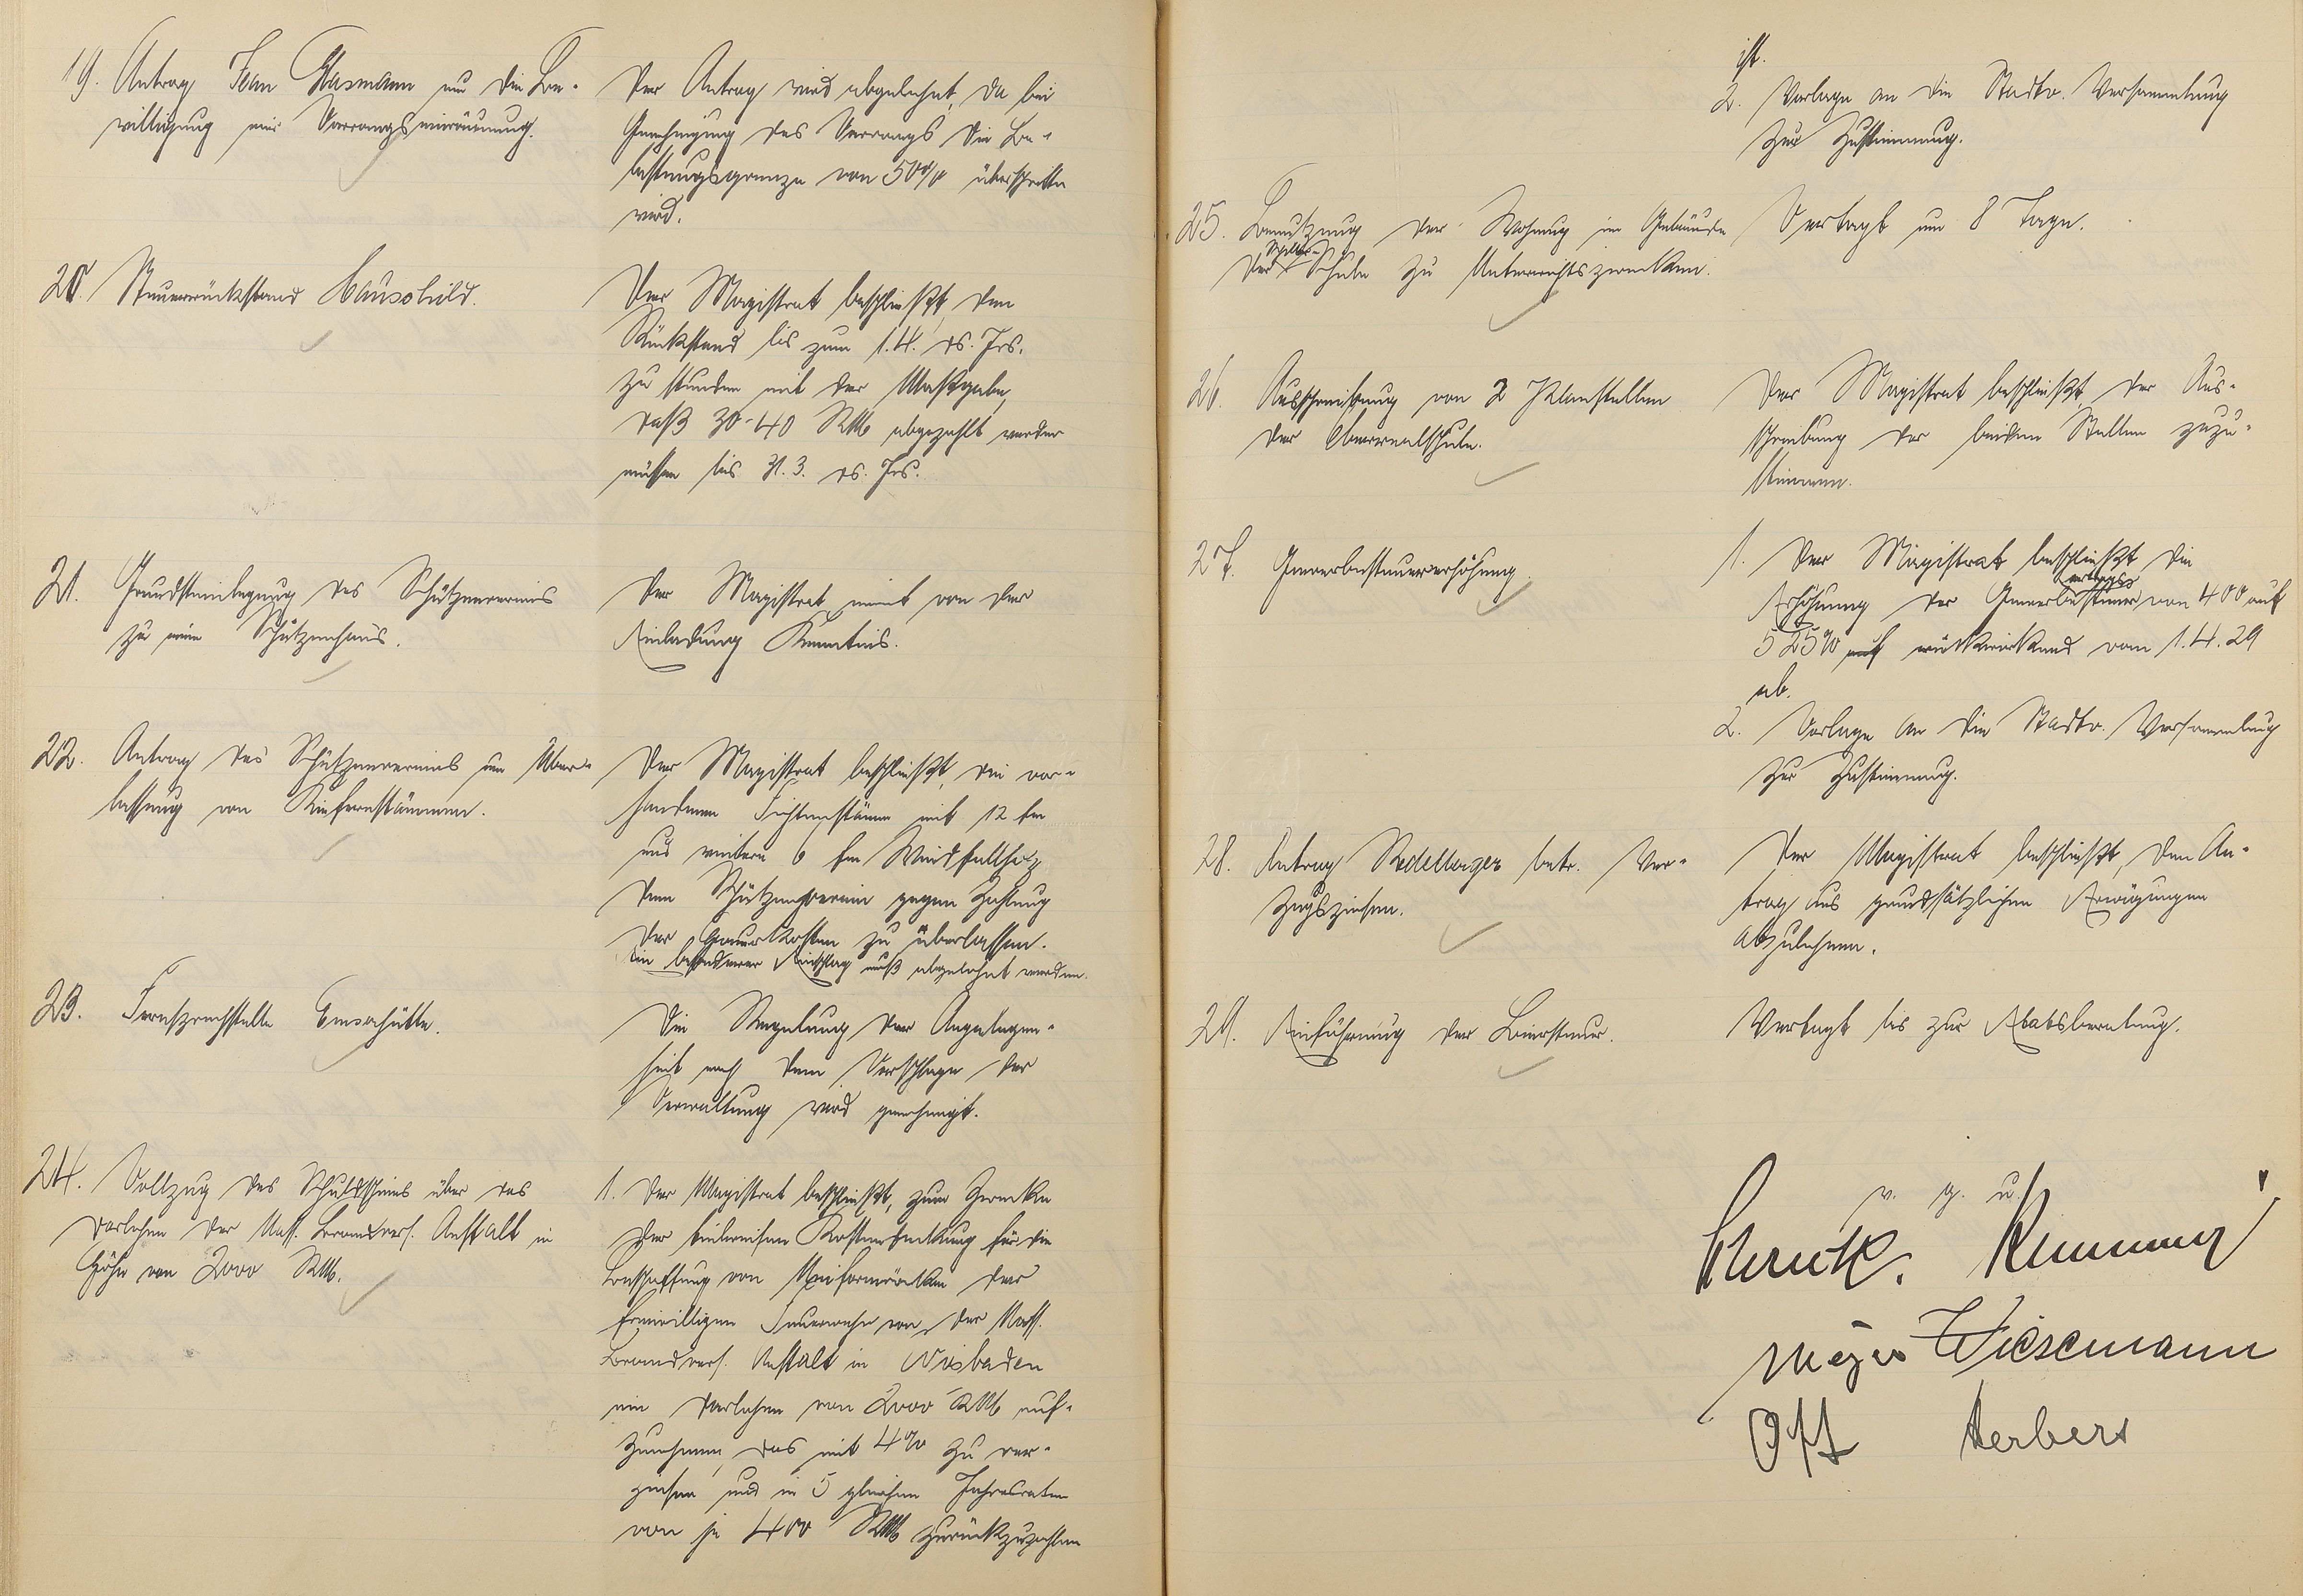 19. Antrag Jean Glasmann um die Be-
willigung einer Vorrangseinräumung.
Der Antrag wird abgelehnt, da bei
Genehmigung des Vorrangs die Be-
lastungsgrenze von 50% überschritten
wird.
20. Steuerrückstand Hauschild.
Der Magistrat beschließt, den
Rückstand bis zum 1.4. ds. Jrs.
zu stunden mit der Maßgabe,
daß 30-40 RM abgezahlt werden
müssen bis 31.3. ds. Jrs.
21. Grundsteinlegung des Schützenvereins
zu einem Schützenhaus.
Der Magistrat nimmt von der
Einladung Kenntnis.
22. Antrag des Schützenvereins um Über-
lassung von Kiefernstämmen.
Der Magistrat beschließt, die vor-
handenen Fichtenstämme mit 12 fm
und weitere 6 fm Windfallholz
dem Schützenverein gegen Zahlung
der Hauerkosten zu überlassen.
Ein besonderer Einschlag muß abgelehnt werden.
23. Fernsprechstelle Emserhütte.
Die Regelung der Angelegen-
heit nach dem Vorschlage der
Verwaltung wird genehmigt.
24. Vollzug des Schuldscheins über das
Darlehen der Nass. Brandvers. Anstalt in
Höhe von 2000 RM.
1. Der Magistrat beschließt, zum Zwecke
der teilweisen Kostendeckung für die
Beschaffung von Uniformröcken der
freiwilligen Feuerwehr von der Nass.
Brandvers. Anstalt in Wiesbaden
ein Darlehen von 2000 RM auf-
zunehmen, das mit 4% zu ver-
zinsen und in 5 gleichen Jahresraten
von je 400 RM zurückzuzahlen
ist.
2. Vorlage an die Stadtv. Versammlung
zur Zustimmung.
25. Benutzung der Wohnung im Gebäude
der Schiller-Schule zu Unterrichtszwecken.
Vertagt um 8 Tage.
26. Ausschreibung von 2 Planstellen
der Oberrealschule.
Der Magistrat beschließt, der Aus-
schreibung der beiden Stellen zuzu-
stimmen.
27. Gewerbesteuererhöhung.
1. Der Magistrat beschließt die
Erhöhung der Gewerbeertragssteuer von 400 auf
525% auf rückwirkend vom 1.4.29
ab.
2. Vorlage an die Stadtv. Versammlung
zur Zustimmung.
28. Antrag Redelberger betr. Ver-
zugszinsen.
Der Magistrat beschließt, den An-
trag aus grundsätzlichen Erwägungen
abzulehnen.
29. Einführung der Biersteuer.
Vertagt bis zur Etatsberatung.
v. g. u.
Meyer Wiesemann
Ott Herbert